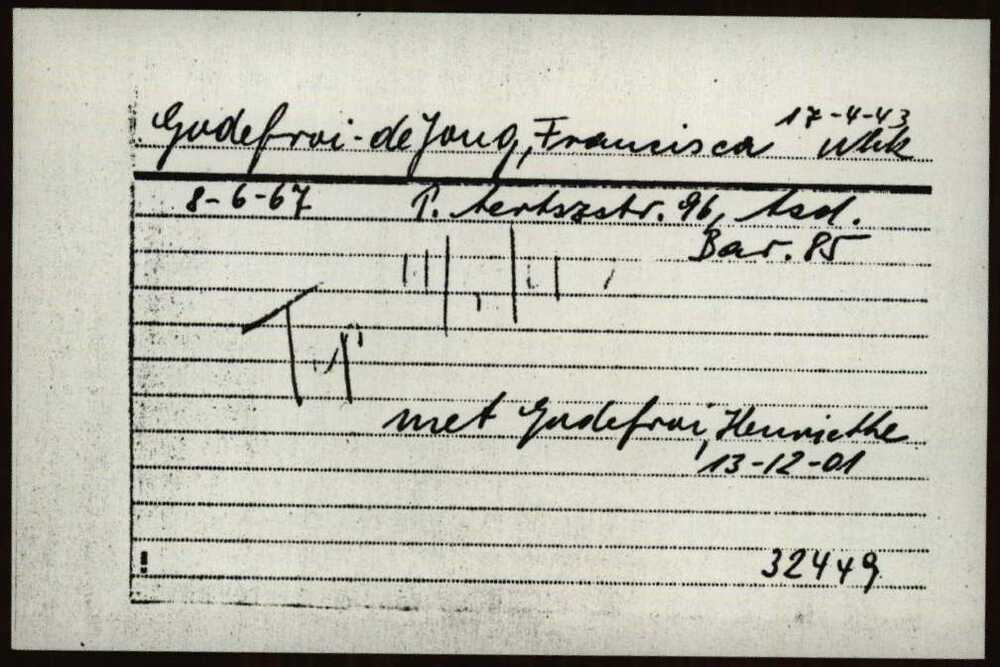 17-4-43
Godefroi-de Jong, Francisca Wbk
8-6-67 P. Aertszstr. 96, Asd.
Bar. 85
met Godefroi, Henriette
13-12-01
! 32449